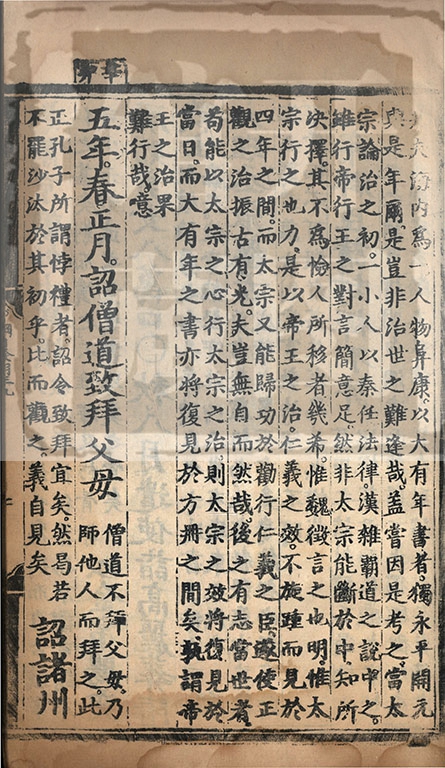 夫海内爲一人物阜康。以大有年書者。獨永平開元
與是年爾。是豈非治世之難逢哉。蓋嘗因是考之。當太
宗論治之初。一小人以秦任法律。漢雜覇道之說中之。
雖行帝行王之對言簡意足。然非太宗能斷於中。知所
决擇。其不爲憸人所移者幾希。惟魏徵言之也明。惟太
宗行之也力。是以帝王之治。仁義之效。不旋踵而見於
四年之間。而太宗又能歸功於勸行仁義之臣。遂使正
觀之治振古有光。夫豈無自而然哉。後之有志當世者。
苟能以太宗之心行太宗之治。則太宗之效將復見於
當日。而大有年之書亦將復見於方冊之間矣。孰謂帝
王之治果
難行哉。噫
五年。春正月。詔僧道致拜父母
僧道不拜父母。乃
師他人而拜之。此
正孔子所謂悖禮者。詔令致拜宜矣。然曷若
不罷沙汰於其初乎。比而觀之。義自見矣
詔諸州